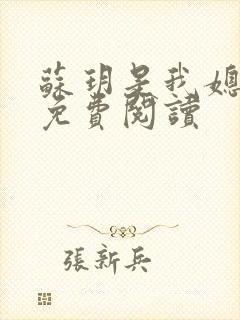 蘇玥是我媳
免費閱讀
張新兵